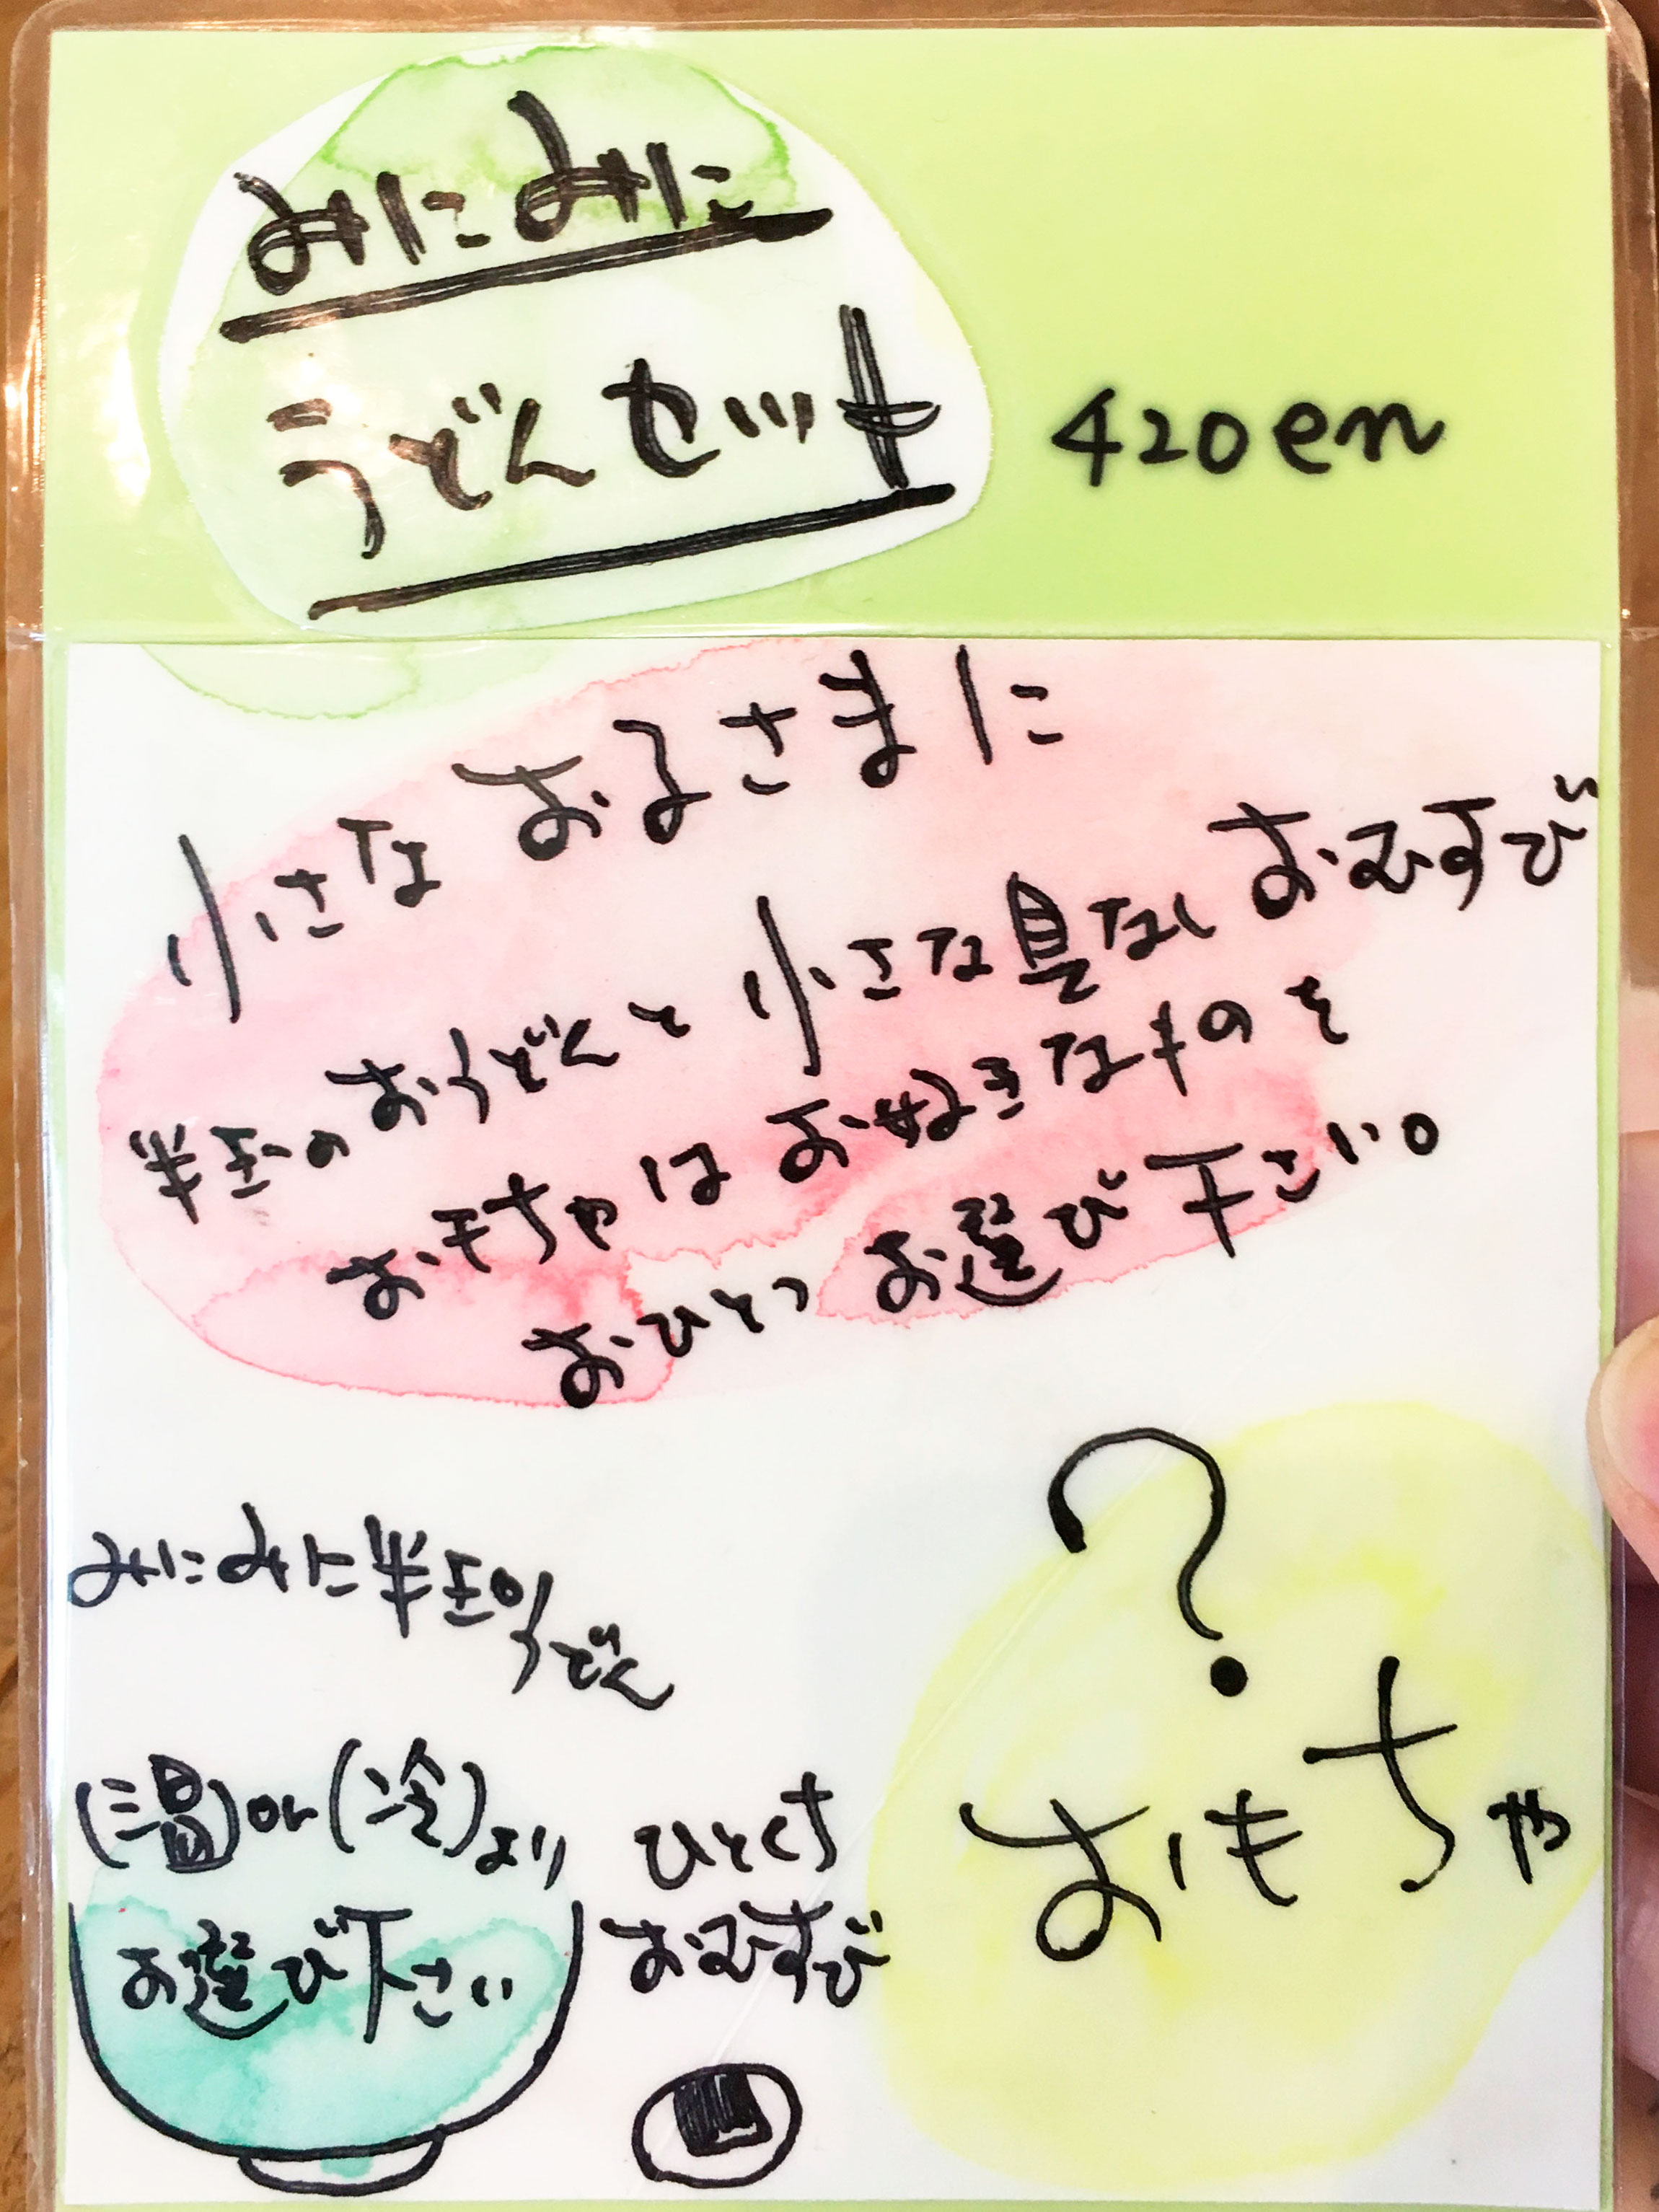 みにみに
うどんセット
420en
小さなお子さまに
半玉のおうどんと小さな具なしおむすび
おもちゃはお好きなものを
おひとつお選び下さい。
みにみに半玉うどん
(温)or(冷)より
お選び下さい
ひとくち
おむすび
?
おもちゃ